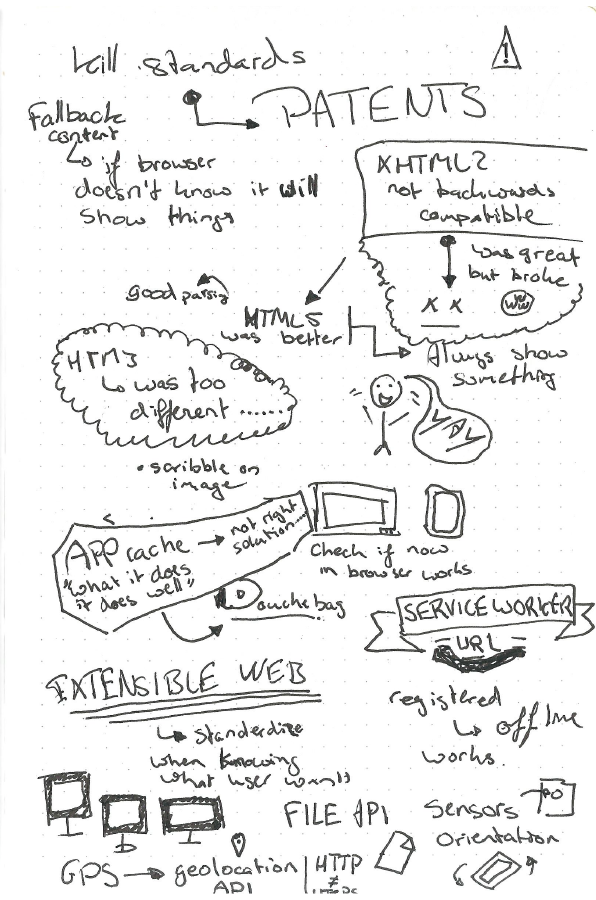 kill standards
PATENTS
Fallback
content
if browser
doesn't know it will
show things
XHTML2
not backwards
compatible
was great
but broke
X X
WWW
good parsing
HTML5
was better
Always show
something
HTM3
was too
different ......
scribble on
image
APP cache
not right
solution...
"what it does
it does well"
Douchebag
Check if now
in browser works
SERVICEWORKER
URL
registered
offline
works.
EXTENSIBLE WEB
standerdize
when knowing
what user wants
FILE API
Sensors
Orientation
GPS
geolocation
API
HTTP
≠